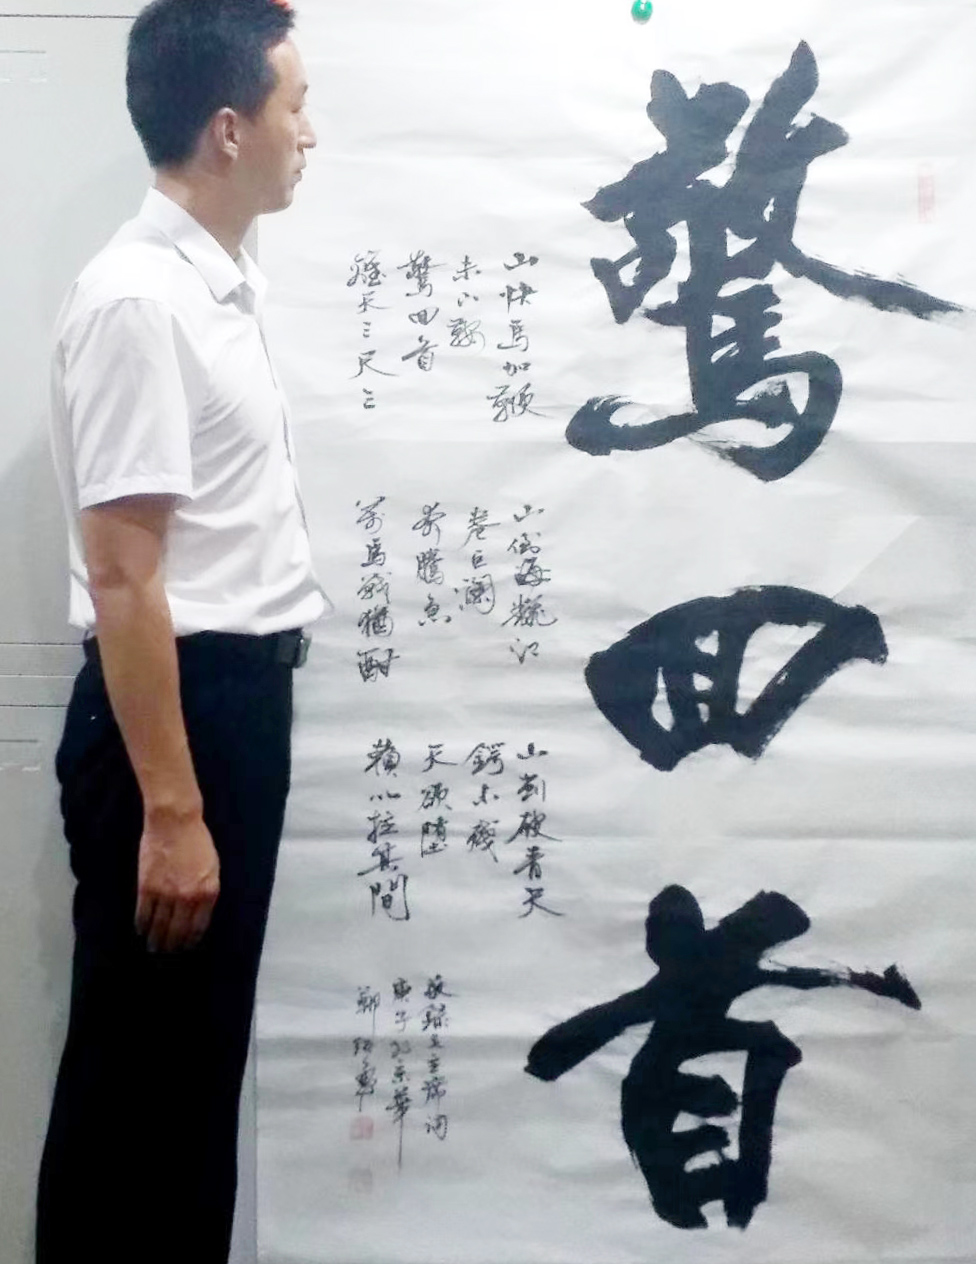 驚回首
山快馬加鞭
未下鞍
驚回首
離天三尺三
山倒海翻江
卷巨瀾
奔騰急
萬馬戰猶酣
山刺破青天
鍔未殘
天欲墮
賴以拄其間
敬錄毛主席詞
庚子於京華
鄭